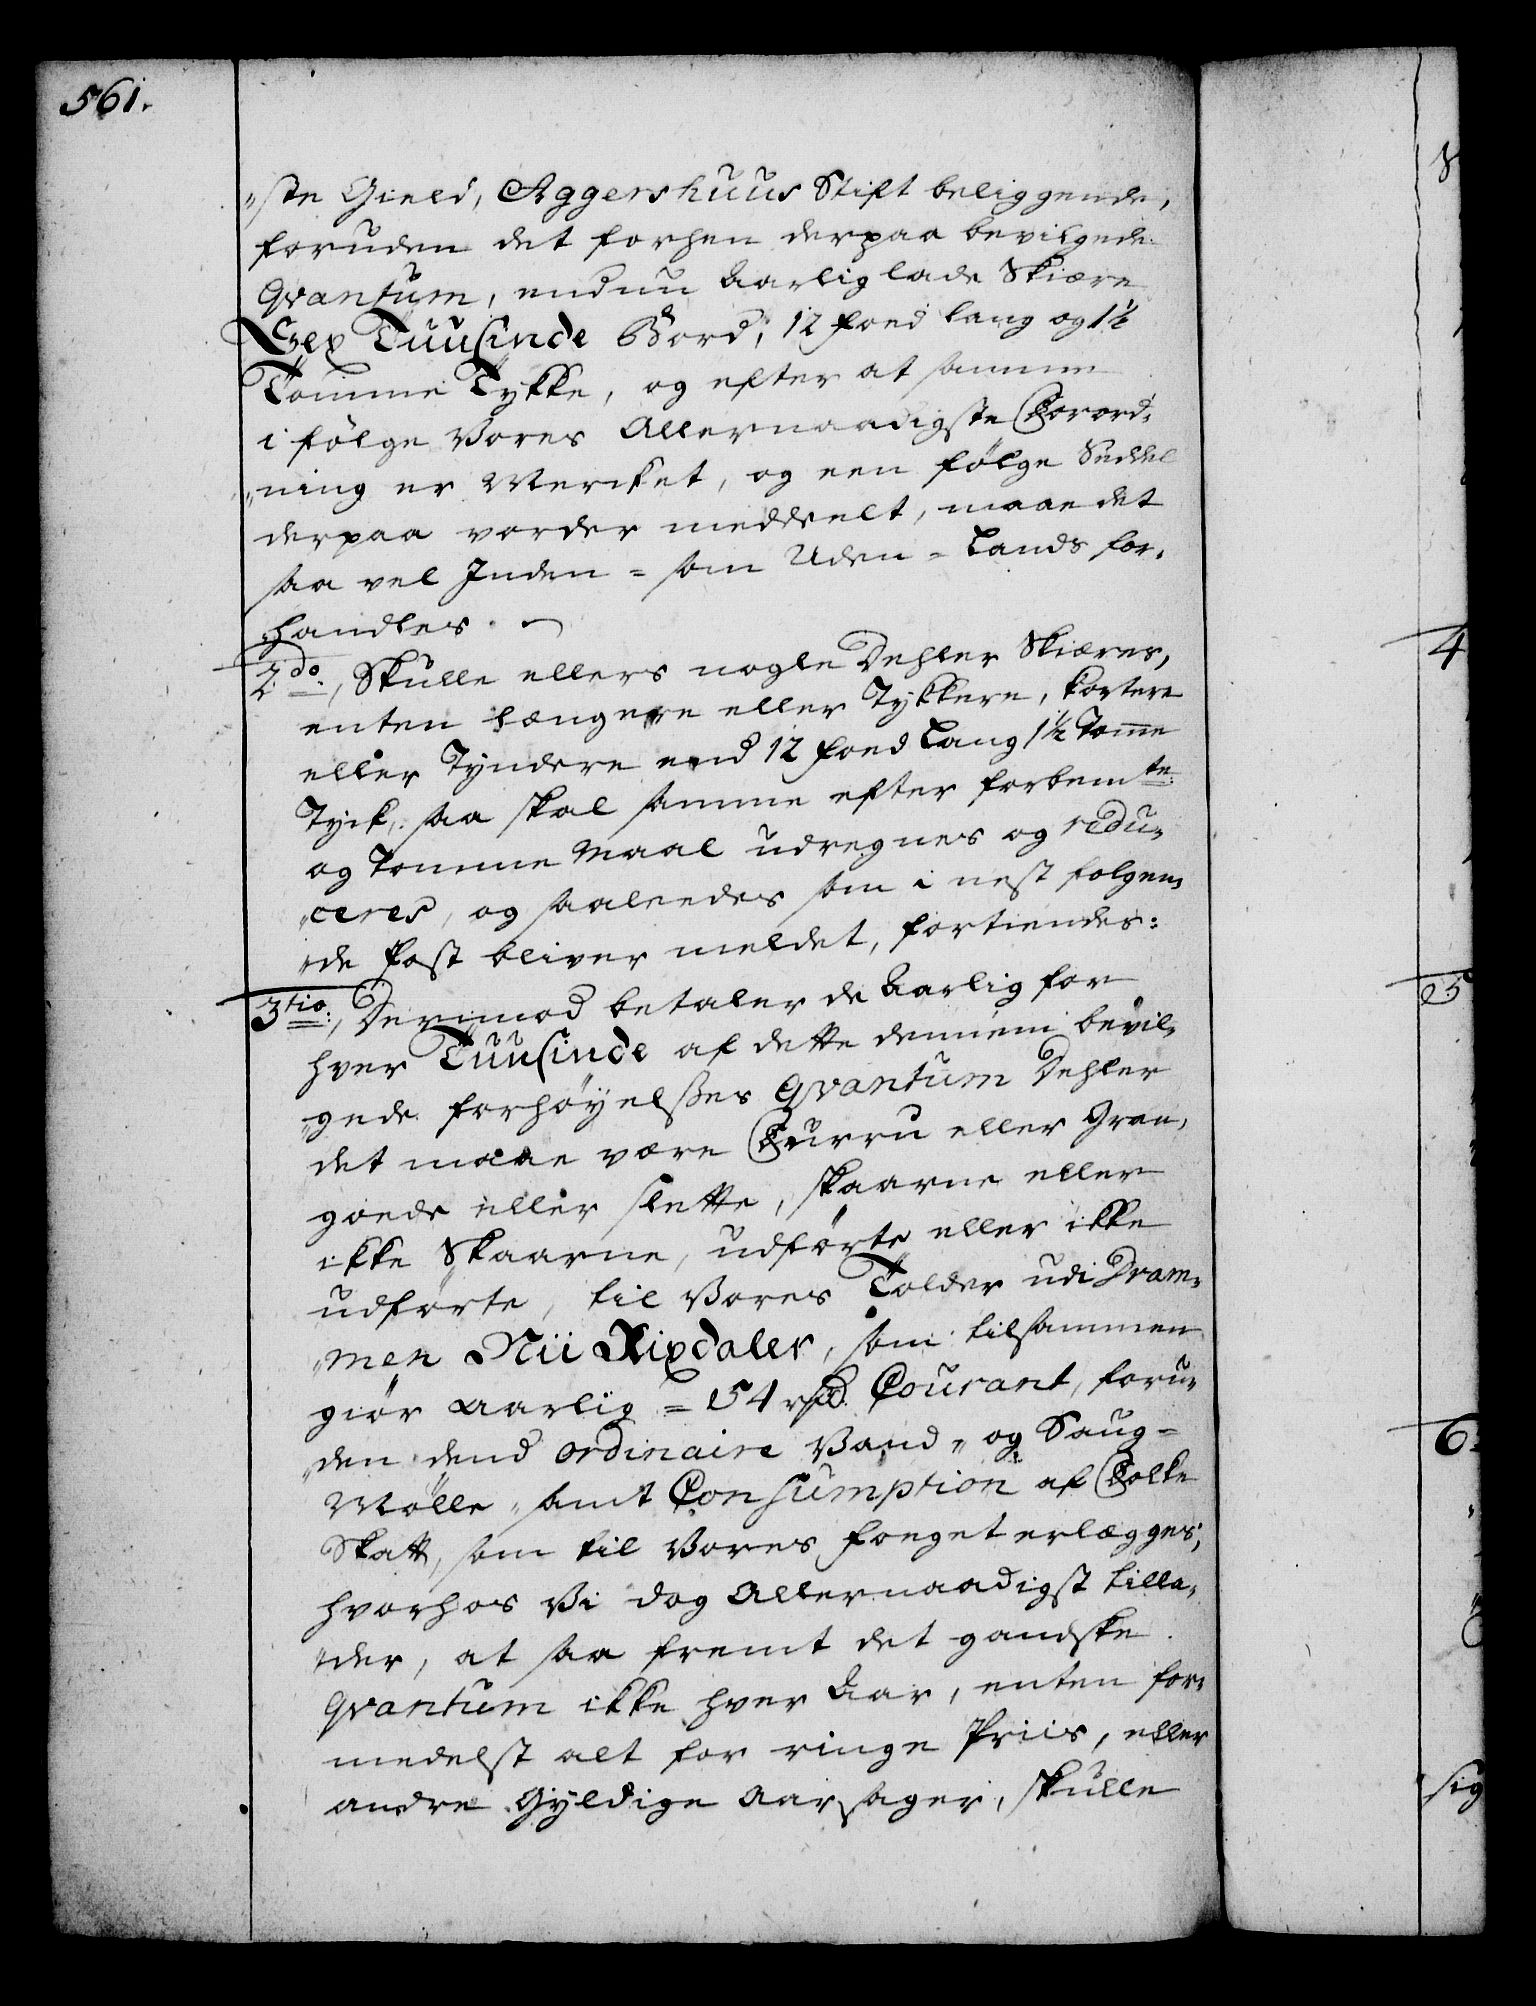 561.
"ste Gield, Aggershuus Stift beliggende,
foruden det forhen derpaa bevilgede
Qvantum, endnu Aarlig lade Skiære
Sex Tuusinde Bord, 12 foed lang og 1½
Tomme Tykke, og efter at samme
i følge Vores Allernaadigste Forord,,
"ning er Mercket, og een følge Seddel
derpaa vorder meddeelt, maae det
saa vel Inden = som Uden = Lands for,,
"handles.
2do., Skulle ellers nogle Dehler Skiæres,
enten længere eller Tykkere, kortere
eller Tyndere end 12 foed Lang 1½ Tomme
Tyck, saa skal samme efter forbemte.
og Tomme Maal udregnes og redu,,
"ceres, og saaleedes som i nest folgen,,
"de Post bliver meldet, fortiendes:
3tio., Derimod betaler de Aarlig for
hver Tuusinde af dette dennem bevil,,
"gede forhøyelses Qvantum Dehler
det maae være Furru eller Gran,
goede eller slette, skaarne eller
ikke Skaarne, udførte eller ikke
udførte, til Vores Tolder udi Dram,,
"men Nii Rixdaler, som tilsammen
giør aarlig = 54 rxd. Courant, foru,,
"den dend ordinaire Vand,, og Saug=
Mølle,, samt Consumption af Folke
Skatt, som til Vores foeget erlægges,
hvorhos Vi dog Allernaadigst tilla,,
"der, at saa fremt det gandske
qvantum ikke hver Aar, enten for,,
medelst alt for ringe Priis, eller
andre Gyldige Aarsager, skulle
4
5
6
sig